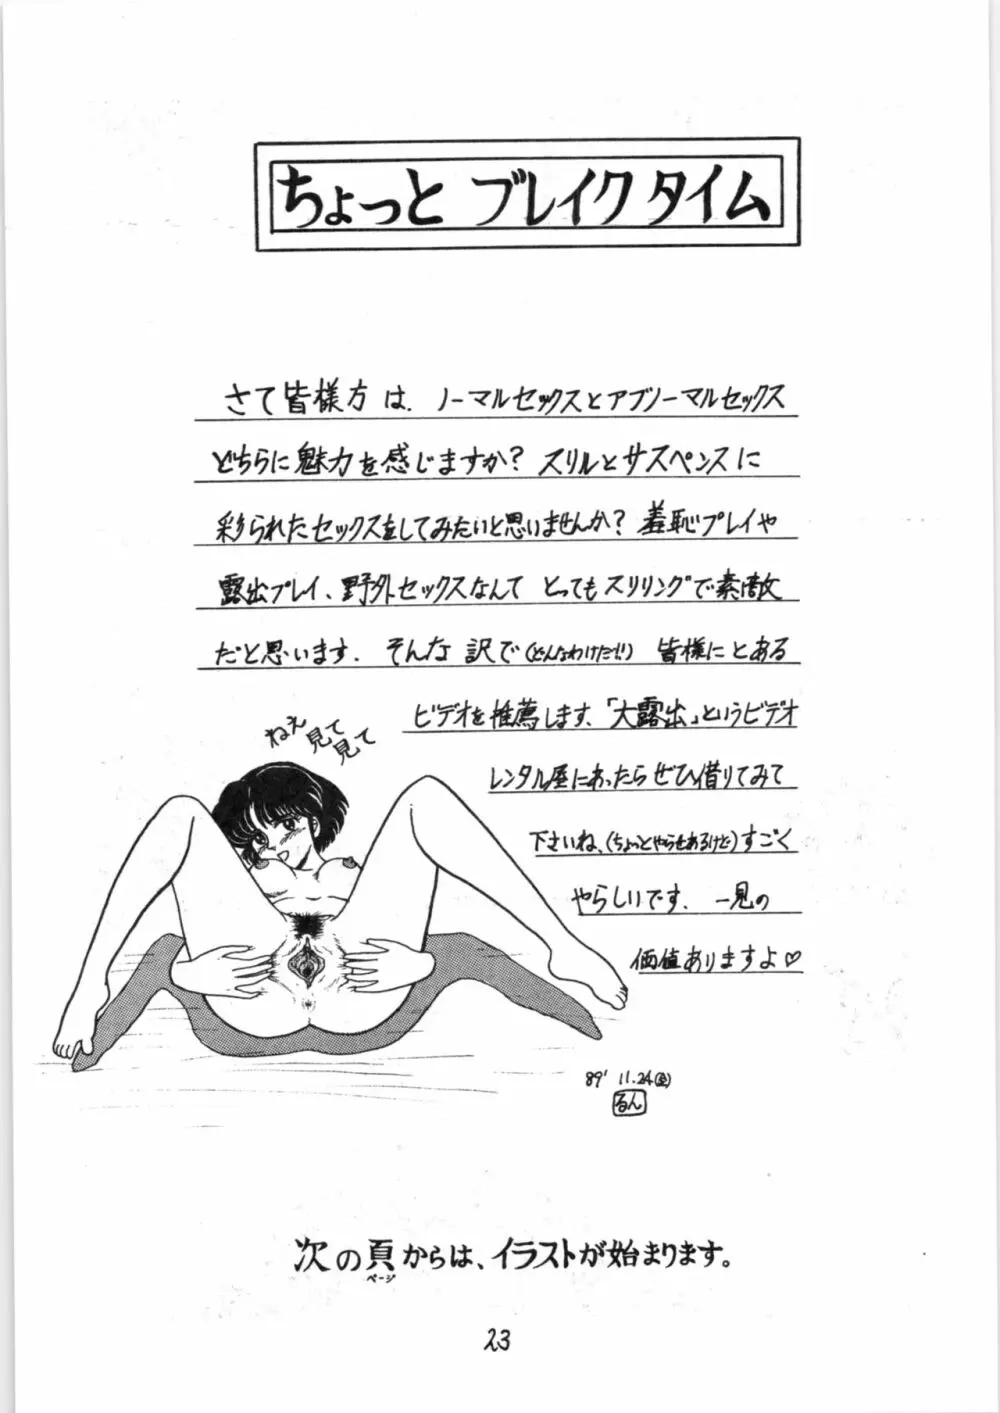 ちょっと ブレイクタイム
さて皆様方は、ノーマルセックスとアブノーマルセックス
どちらに魅力を感じますか？スリルとサスペンスに
彩られたセックスをしてみたいと思いませんか？羞恥プレイや
露出プレイ、野外セックスなんて とってもスリリングで素敵
だと思います。そんな訳で(どんなわけだ!!) 皆様にとある
ビデオを推薦します、「大露出」というビデオ
レンタル屋にあったらぜひ借りてみて
下さいね、(ちょっとやらせあるけど)すごく
やらしいです。一見の
価値ありますよ♡
ねえ
見て
見て
89' 11.24(金)
るん
次の頁からは、イラストが始まります。
ページ
23